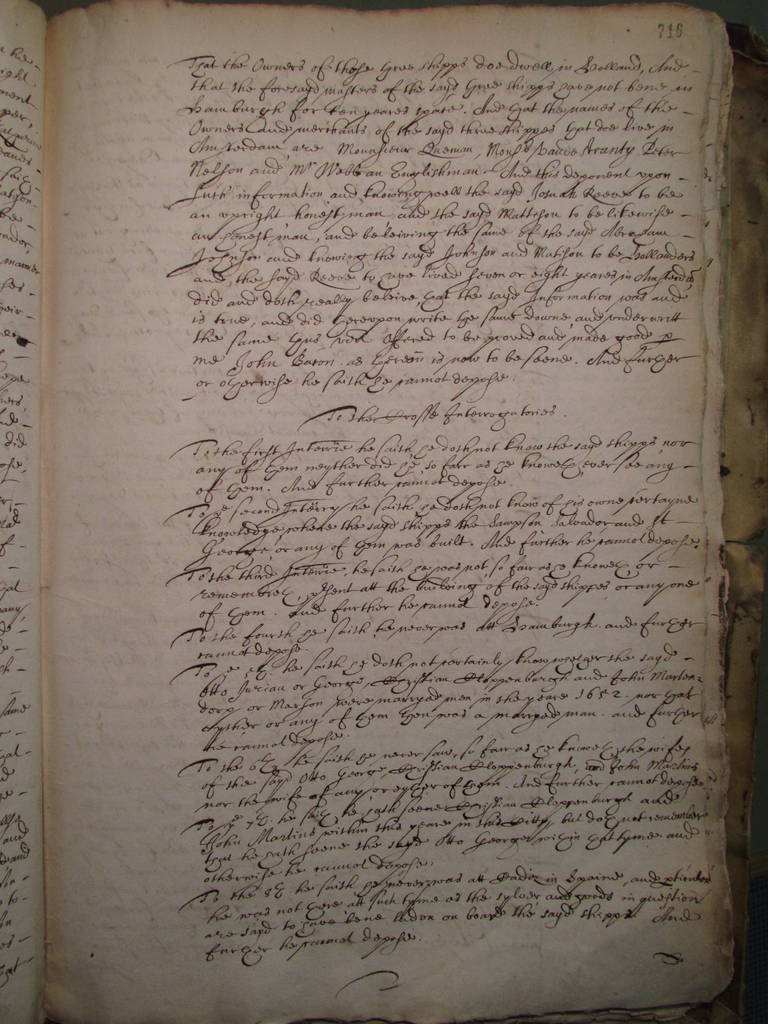 716
That the Owners of those three shipps doe dwell in Holland, And
that the foresayd masters of the sayd three shipps have not bene in
Hamburgh for ten yeares space. And that the names of the
Owners and merchants of the sayd three shippes that doe live in
Amsterdam are Mounsieur Queman, Peter
Nelson and Mr Webb an Englishman. And this deponent upon
such information and knowing well the sayd Josuah Reeve to be
an upright honest man and the sayd Mattson to be likewise
an honest man, and beleiving the same of the sayd Abraham
Johnson and knowing the sayd Johnson and Matson to be Hollanders
and the sayd Reeve to have lived seven or eight yeares in Amsterdam
did and doth really beleive that the sayd Information was and
is true, and did thereupon write the same downe and underwritt
the same thus, vizt offered to be proved and made good p
me John Baron. as therein is now to be seene. And further
or otherwise he saith he cannot depose.
To the Crosse Interrogatories.
To the first Interrie he saith he doth not know the sayd shipps nor
any of them neyther did he, so farr as he knoweth ever see any
of them. And further cannot depose.
To ye second Interry he saith he doth not know of his owne certayne
knowledge the sayd shipps the Sampson Salvador and St
George, or any of them was built. And further he cannot depose.
To the third Interrie, he saith he was not, so farr as he knoweth or
remembreth, present att the building of the sayd shippes or any one
of them. And further he cannot depose.
To the fourth he saith he never was att Hamburgh. and further
cannot depose.
To ye 5th. he saith he doth not certainly know whether the sayd
Otto Jurian or George, Christian Cloppenburgh and John Marten
dorp or Matson were marryed men in the yeare 1652. nor that
eyther or any of them then was a marryed man. and further
he cannot depose.
To the 6th. he saith he never saw, so farr as he knoweth, the wifes
of the sayd Otto George, Christian Cloppenburgh, and John Martins
nor the wife of any or eyther of them. And further cannot depose
To ye 7th. he saith he hath seene Christian Cloppenburgh and
John Martins within this yeare in this Citty but doth not remember
that he hath seene the sayd Otto George within that tyme. and
otherwise he cannot depose.
To the 8th he saith he never was att Cadiz in Spaine, and pticularly
he was not there att such tyme as the sylver and goods in question
are sayd to have bene laden on board the sayd shipps. And
further he cannot depose.